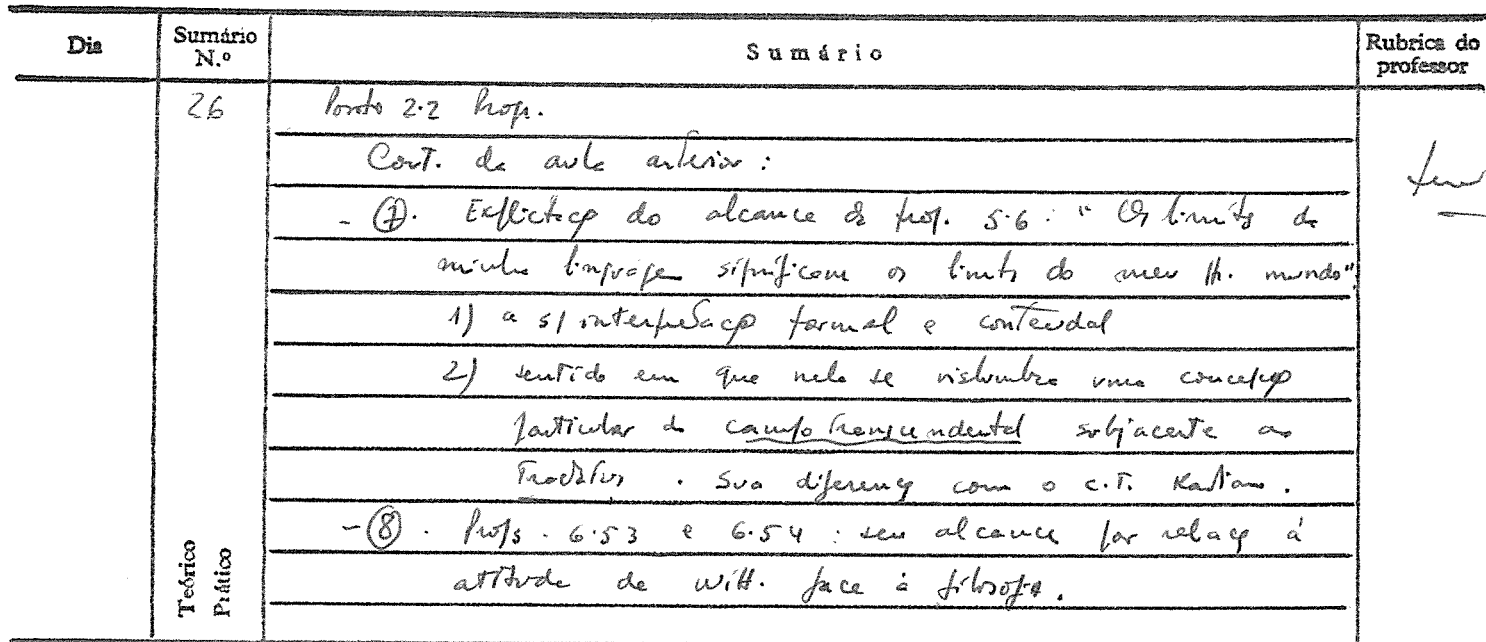 Dia Sumário N.º Sumário Rubrica do professor
26 Ponto 2.2 Prog.
Cont. da aula anterior :
- ⑦. Explictaçº do alcance da prop. 5.6 : " Os limits da
minha linguagem significam os limits do meu mundo"
1) a s/ interpretaçº formal e conteudal
2) sentido em que nela se vislumbra uma concepçº
particular do campo transcendental subjacente ao
Tractatus . Sua diferença com o c.T. Kantiano.
- ⑧ . Props. 6.53 e 6.54 : seu alcance por relaçº à
atitude de Witt. face à filosofia.
Teórico
Prático